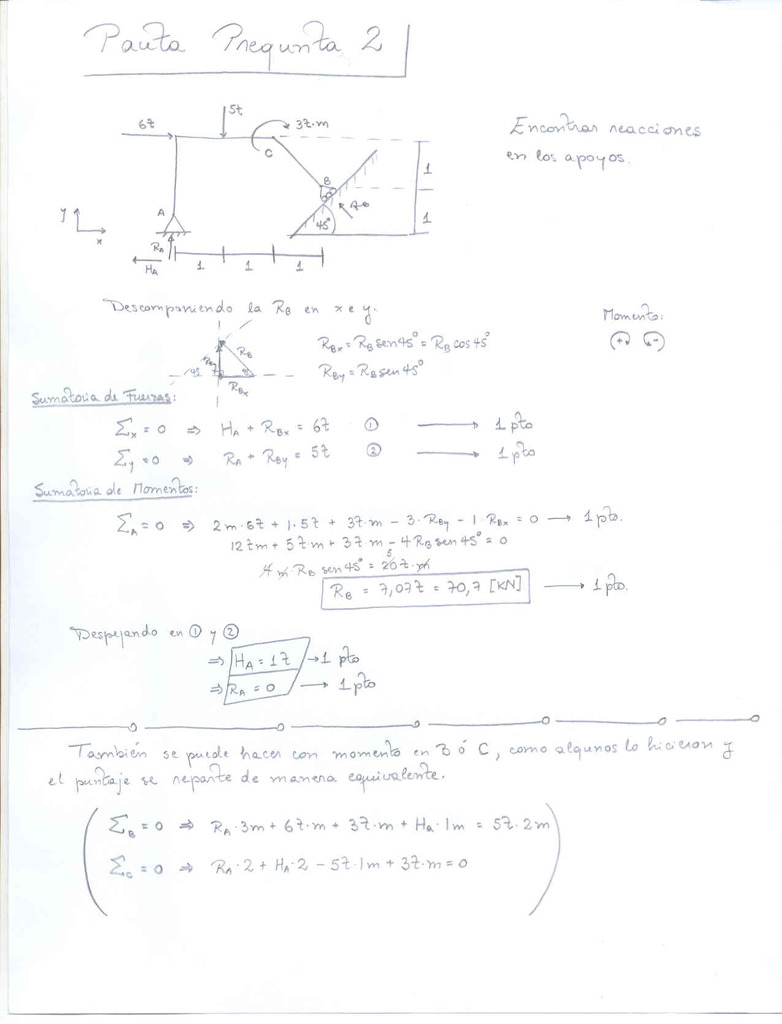 Pauta Pregunta 2
5t
6t
3t·m
C
Encontrar reacciones
en los apoyos.
1
B
RB
A
45°
1
y
x
RA
HA
1 1 1
Descomponiendo la RB en x e y.
Momento:
RBx = RB sen 45° = RB cos 45°
(+) (-)
RBy = RB sen 45°
RBy RB
45
RBx
Sumatoria de Fuerzas:
Σx = 0 ⇒ HA + RBx = 6t ① → 1 pto
Σy = 0 ⇒ RA + RBy = 5t ② → 1 pto
Sumatoria de Momentos:
ΣA = 0 ⇒ 2m·6t + 1·5t + 3t·m - 3·RBy - 1·RBx = 0 → 1 pto.
12tm + 5t·m + 3t·m - 4RB sen 45° = 0
4 m·RB sen 45° = 20t·m
5
RB = 7,07t = 70,7 [KN] → 1 pto.
Despejando en ① y ②
⇒ HA = 1t → 1 pto
⇒ RA = 0 → 1 pto
También se puede hacer con momento en B ó C, como algunos lo hicieron y
el puntaje se reparte de manera equivalente.
ΣB = 0 ⇒ RA·3m + 6t·m + 3t·m + HA·1m = 5t·2m
ΣC = 0 ⇒ RA·2 + HA·2 - 5t·1m + 3t·m = 0